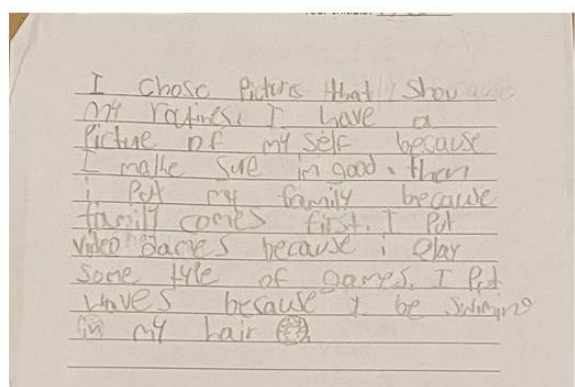 I chose Picturs that show
my routines. I have a
Picture of my self because
I make sure im good. then
i Put my family because
family comes first. I Put
video Games because i Play
some type of games. I Put
waves because I be swiming
in my hair